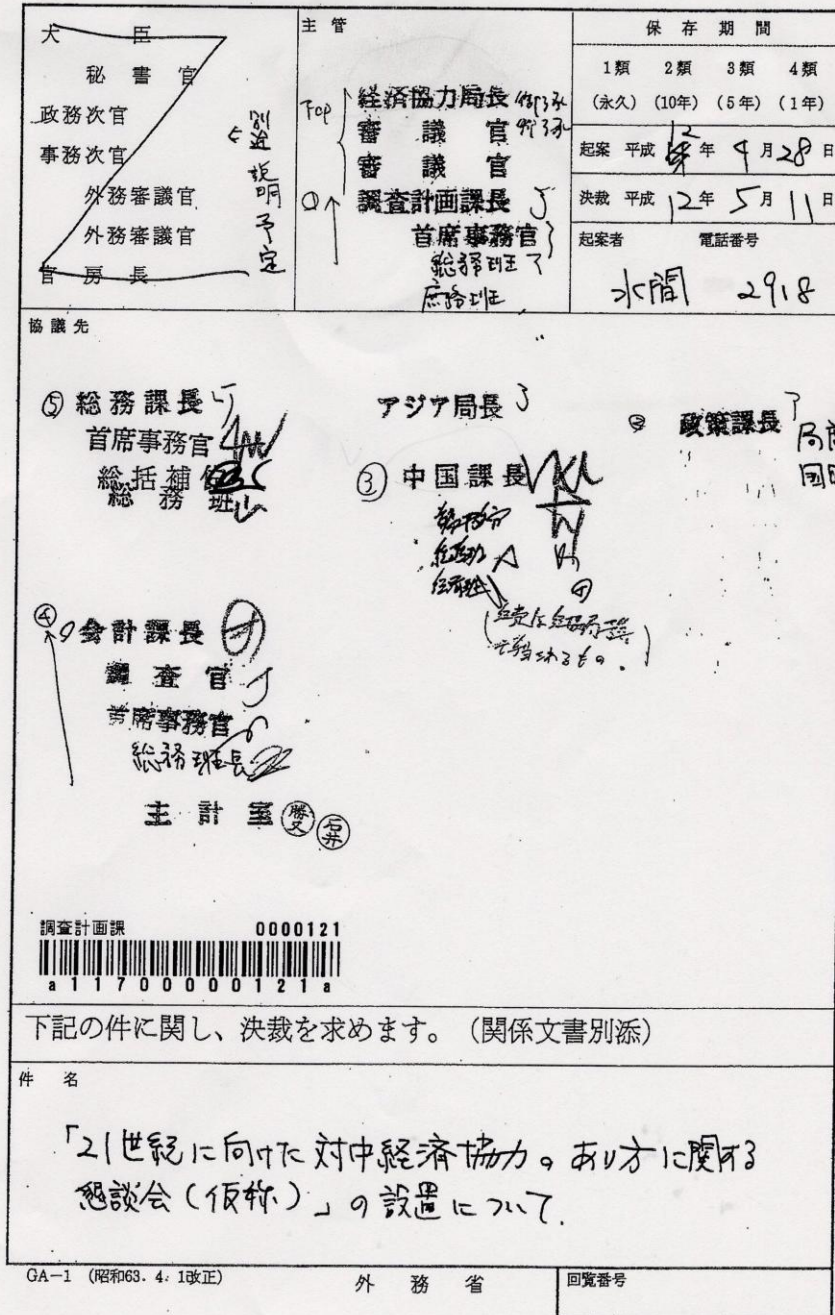 大臣
秘書官
政務次官
事務次官
外務審議官
外務審議官
官房長
別途説明予定
主管
Top
経済協力局長 御了承
審議官 御了承
審議官
① 調査計画課長
首席事務官
総務班
庶務班
保存期間
1類 2類 3類 4類
(永久) (10年) (5年) (1年)
起案 平成 12年 4月28日
決裁 平成 12年 5月11日
起案者 電話番号
水間 2918
協議先
⑤ 総務課長
首席事務官
総括補佐
総務班
アジア局長
③ 中国課長
② 政策課長
④ 会計課長
調査官
首席事務官
総務班長
主計室 勝又 石井
調査計画課 0000121
a11700000121a
下記の件に関し、決裁を求めます。(関係文書別添)
件名
「21世紀に向けた対中経済協力のあり方に関する
懇談会(仮称)」の設置について
GA-1 (昭和63.4.1改正)
外務省
回覧番号